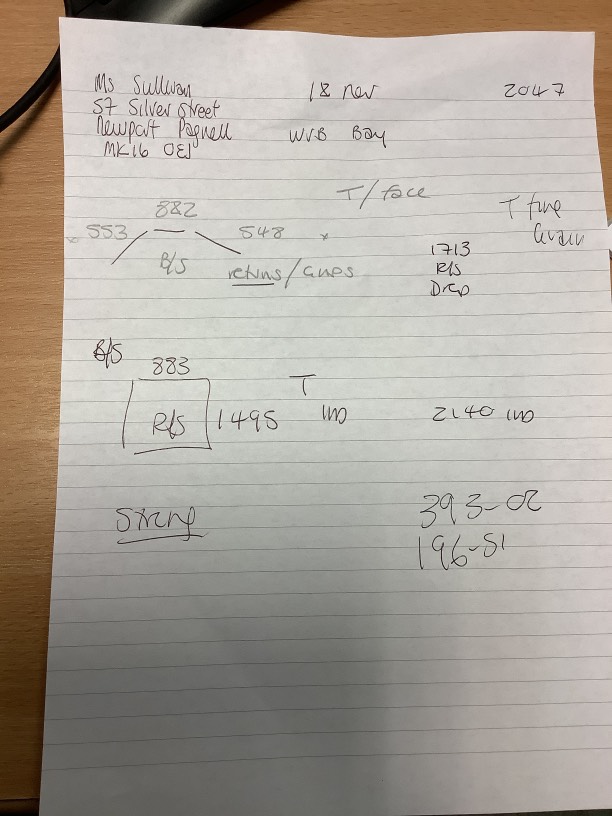 Ms Sullivan 18 nov 2047
57 Silver Street
Newport Pagnell WVB Bay
MK16 0EJ
T/face
882 T fine
553 548 x Grain
B/S returns/ 1713
R/S
Drop
B/S
883 T
R/S 1495 IND 2140 IND
String 393-02
196-51